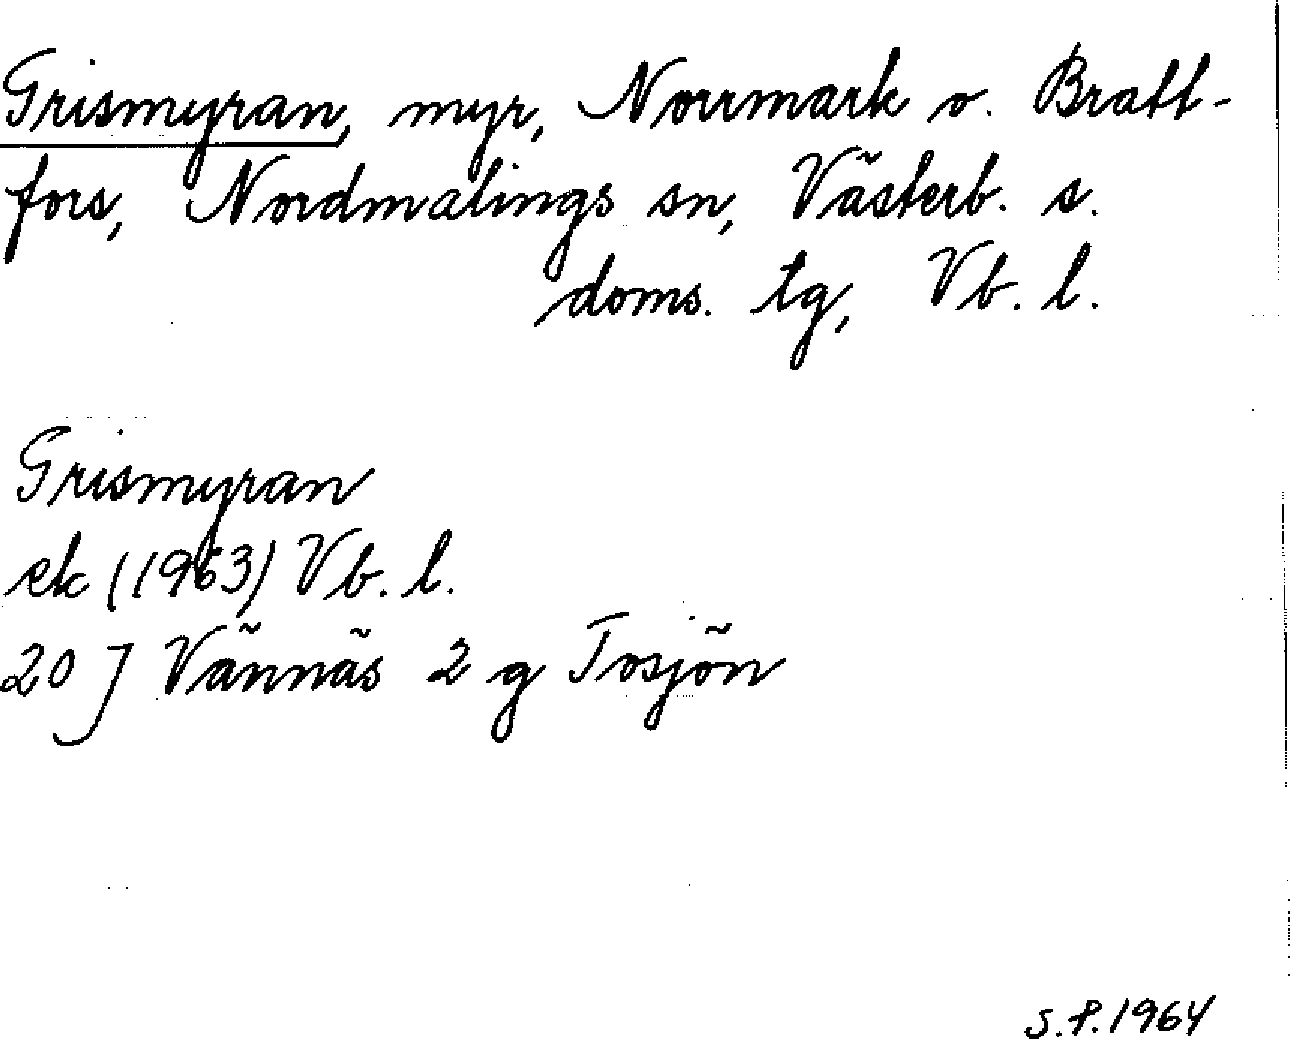 Grismyran, myr, Norrmark o. Bratt-
fors, Nordmalings sn, Västerb. s.
doms. tg, Vb. l.
Grismyran
ek (1963) Vb. l.
20 J Vännäs 2 g Tosjön
S.P. 1964